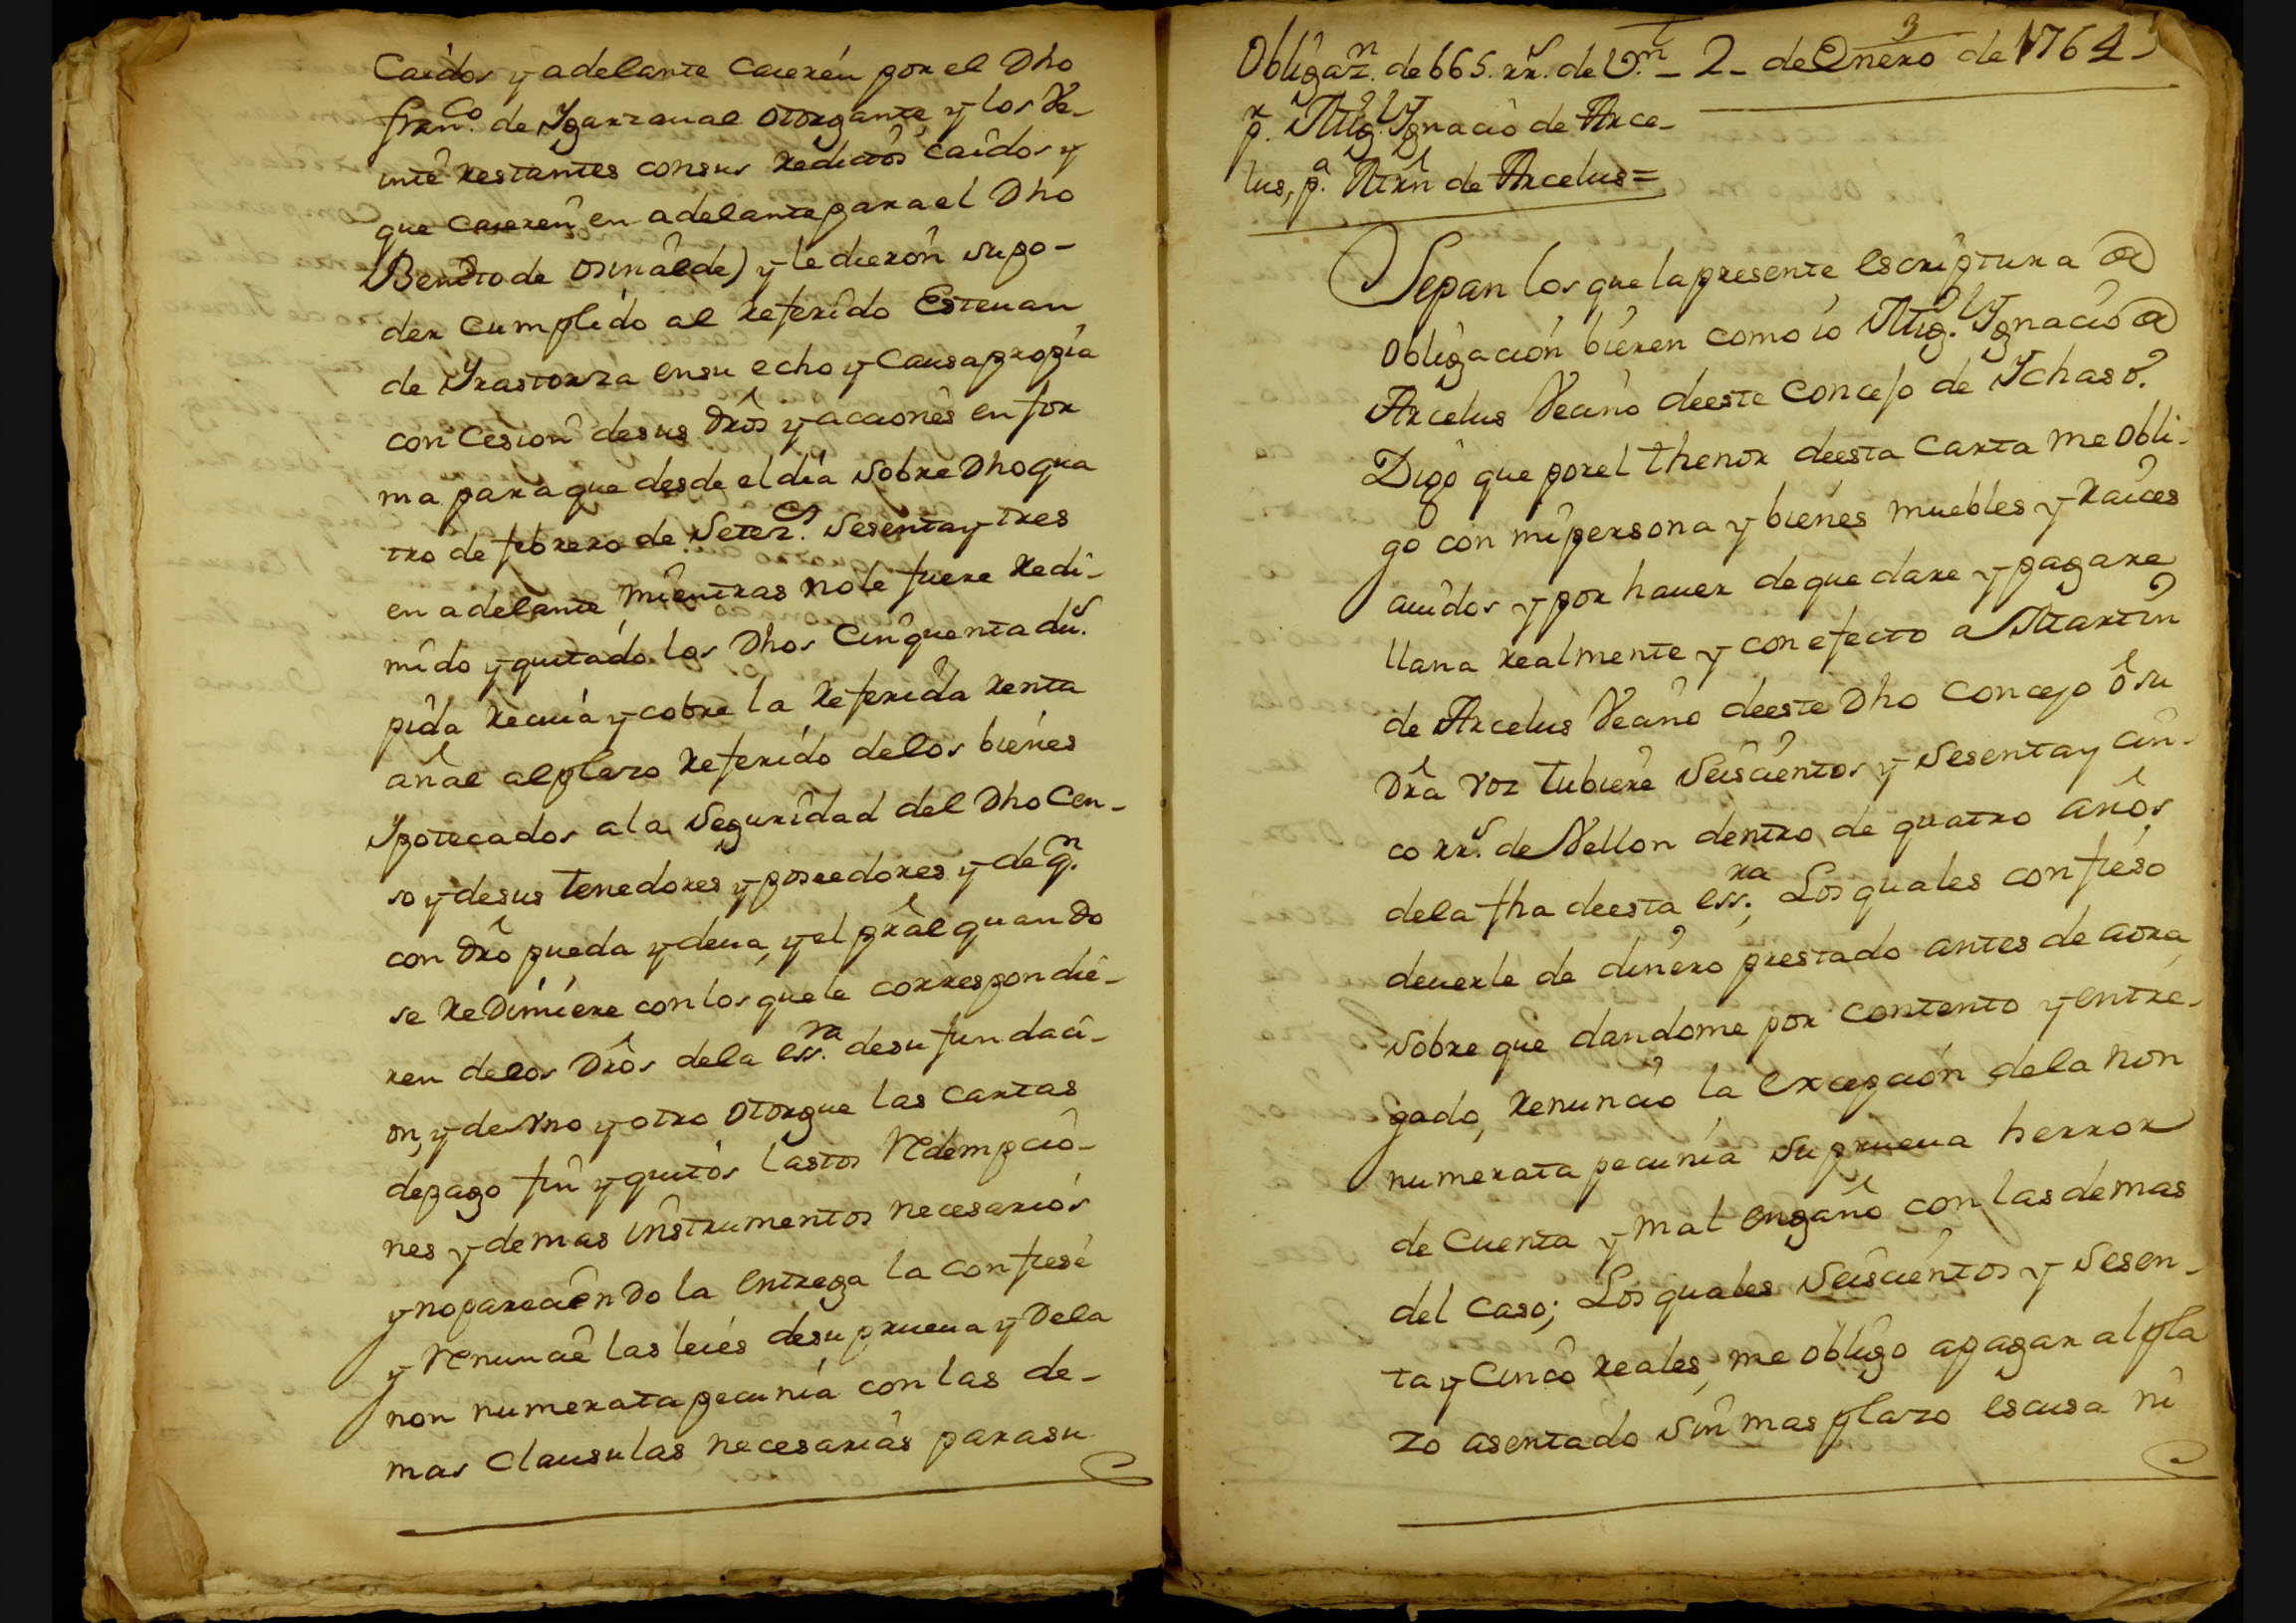 Caidos y adelante caieren por el Dho
Fran.co de Ygarzaual otorgante y los Ve-
inte restantes consus reditos caidos y
que caieren en adelante para el Dho
Benito de Osinalde) y le dieron su po-
der cumplido al referido Esteuan
de Yrastorza ensu echo y Causa propia
con Cesion desus dr̂os y acciones en for
ma para que desde el dia sobre Dho qua
tro de febrero de Setez.s Sesenta y tres
en adelante mientras no le fuere redi-
mido y quitado los Dhos Cinquenta du.s
pida reciuia y cobre la referida renta
añal al plazo referido delos bienes
Ypotecados ala Seguridad del Dho Cen-
so y desus tenedores y poseedores y de q.n
con dr̂o pueda y deua, y el pr̂al quando
se redimiere con los que le correspondie-
ren delos Dr̂os dela ess.ra desu fundaci-
on, y de vno y otro otorgue las cartas
depago fin y quitos lastos redempcio-
nes y demas instrumentos necesarios
y no pareciendo la entrega la confiese
y renuncie las leies desu prueua y Dela
non numerata pecunia con las de-
mas clausulas necesarias para su
3
Obligaz.n de 665. rr.s de V.n - 2 - de Enero de 1764
p.r Mig.l Ygnacio de Arce-
lus, p.a Mr̂n de Arcelus=
Sepan los que la presente escriptura @
obligacion bieren como io Mig.l Ygnacio @
Arcelus Vecino deeste Concejo de Ychaso.
Digo que por el thenor deesta Carta me obli-
go con mi persona y bienes muebles y raices
auidos y por hauer de que dare y pagare
llana realmente y con efecto a Martin
de Arcelus Vecino deeste Dho Concejo ô su
dr̂a voz tubiere Seiscientos y Sesenta y cin-
co rr.s de Vellon dentro de quatro años
dela fha deesta ess.ra, Los quales confieso
deuerle de dinero prestado antes de aora,
sobre que dandome por contento y entre-
gado, renuncio la excepcion dela non
numerata pecunia su prueua herror
de cuenta y mal engaño con las demas
del caso; Los quales Seiscientos y Sesen-
ta y Cinco reales, me obligo apagar al pla
zo asentado sin mas plazo escusa ni